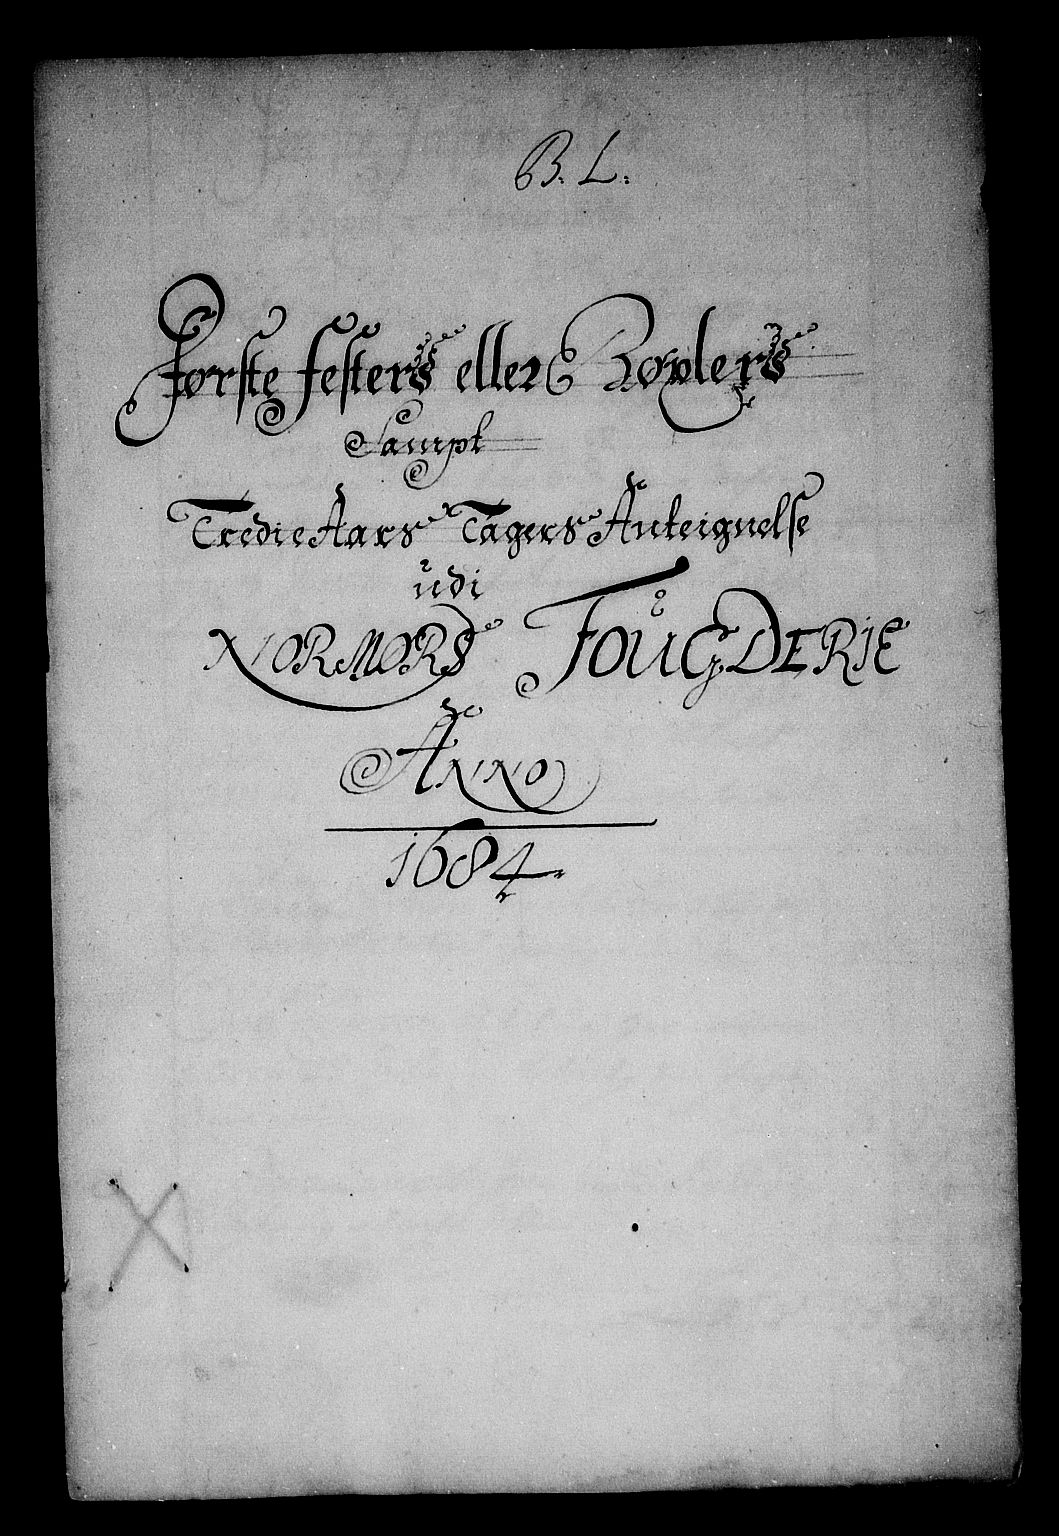 B: L:
Første festers eller Bøxlers
Sampt
Tredie Aars Tagers Anteignelse
udi
NORMØRS FOUGDERIE
ANNO
1684